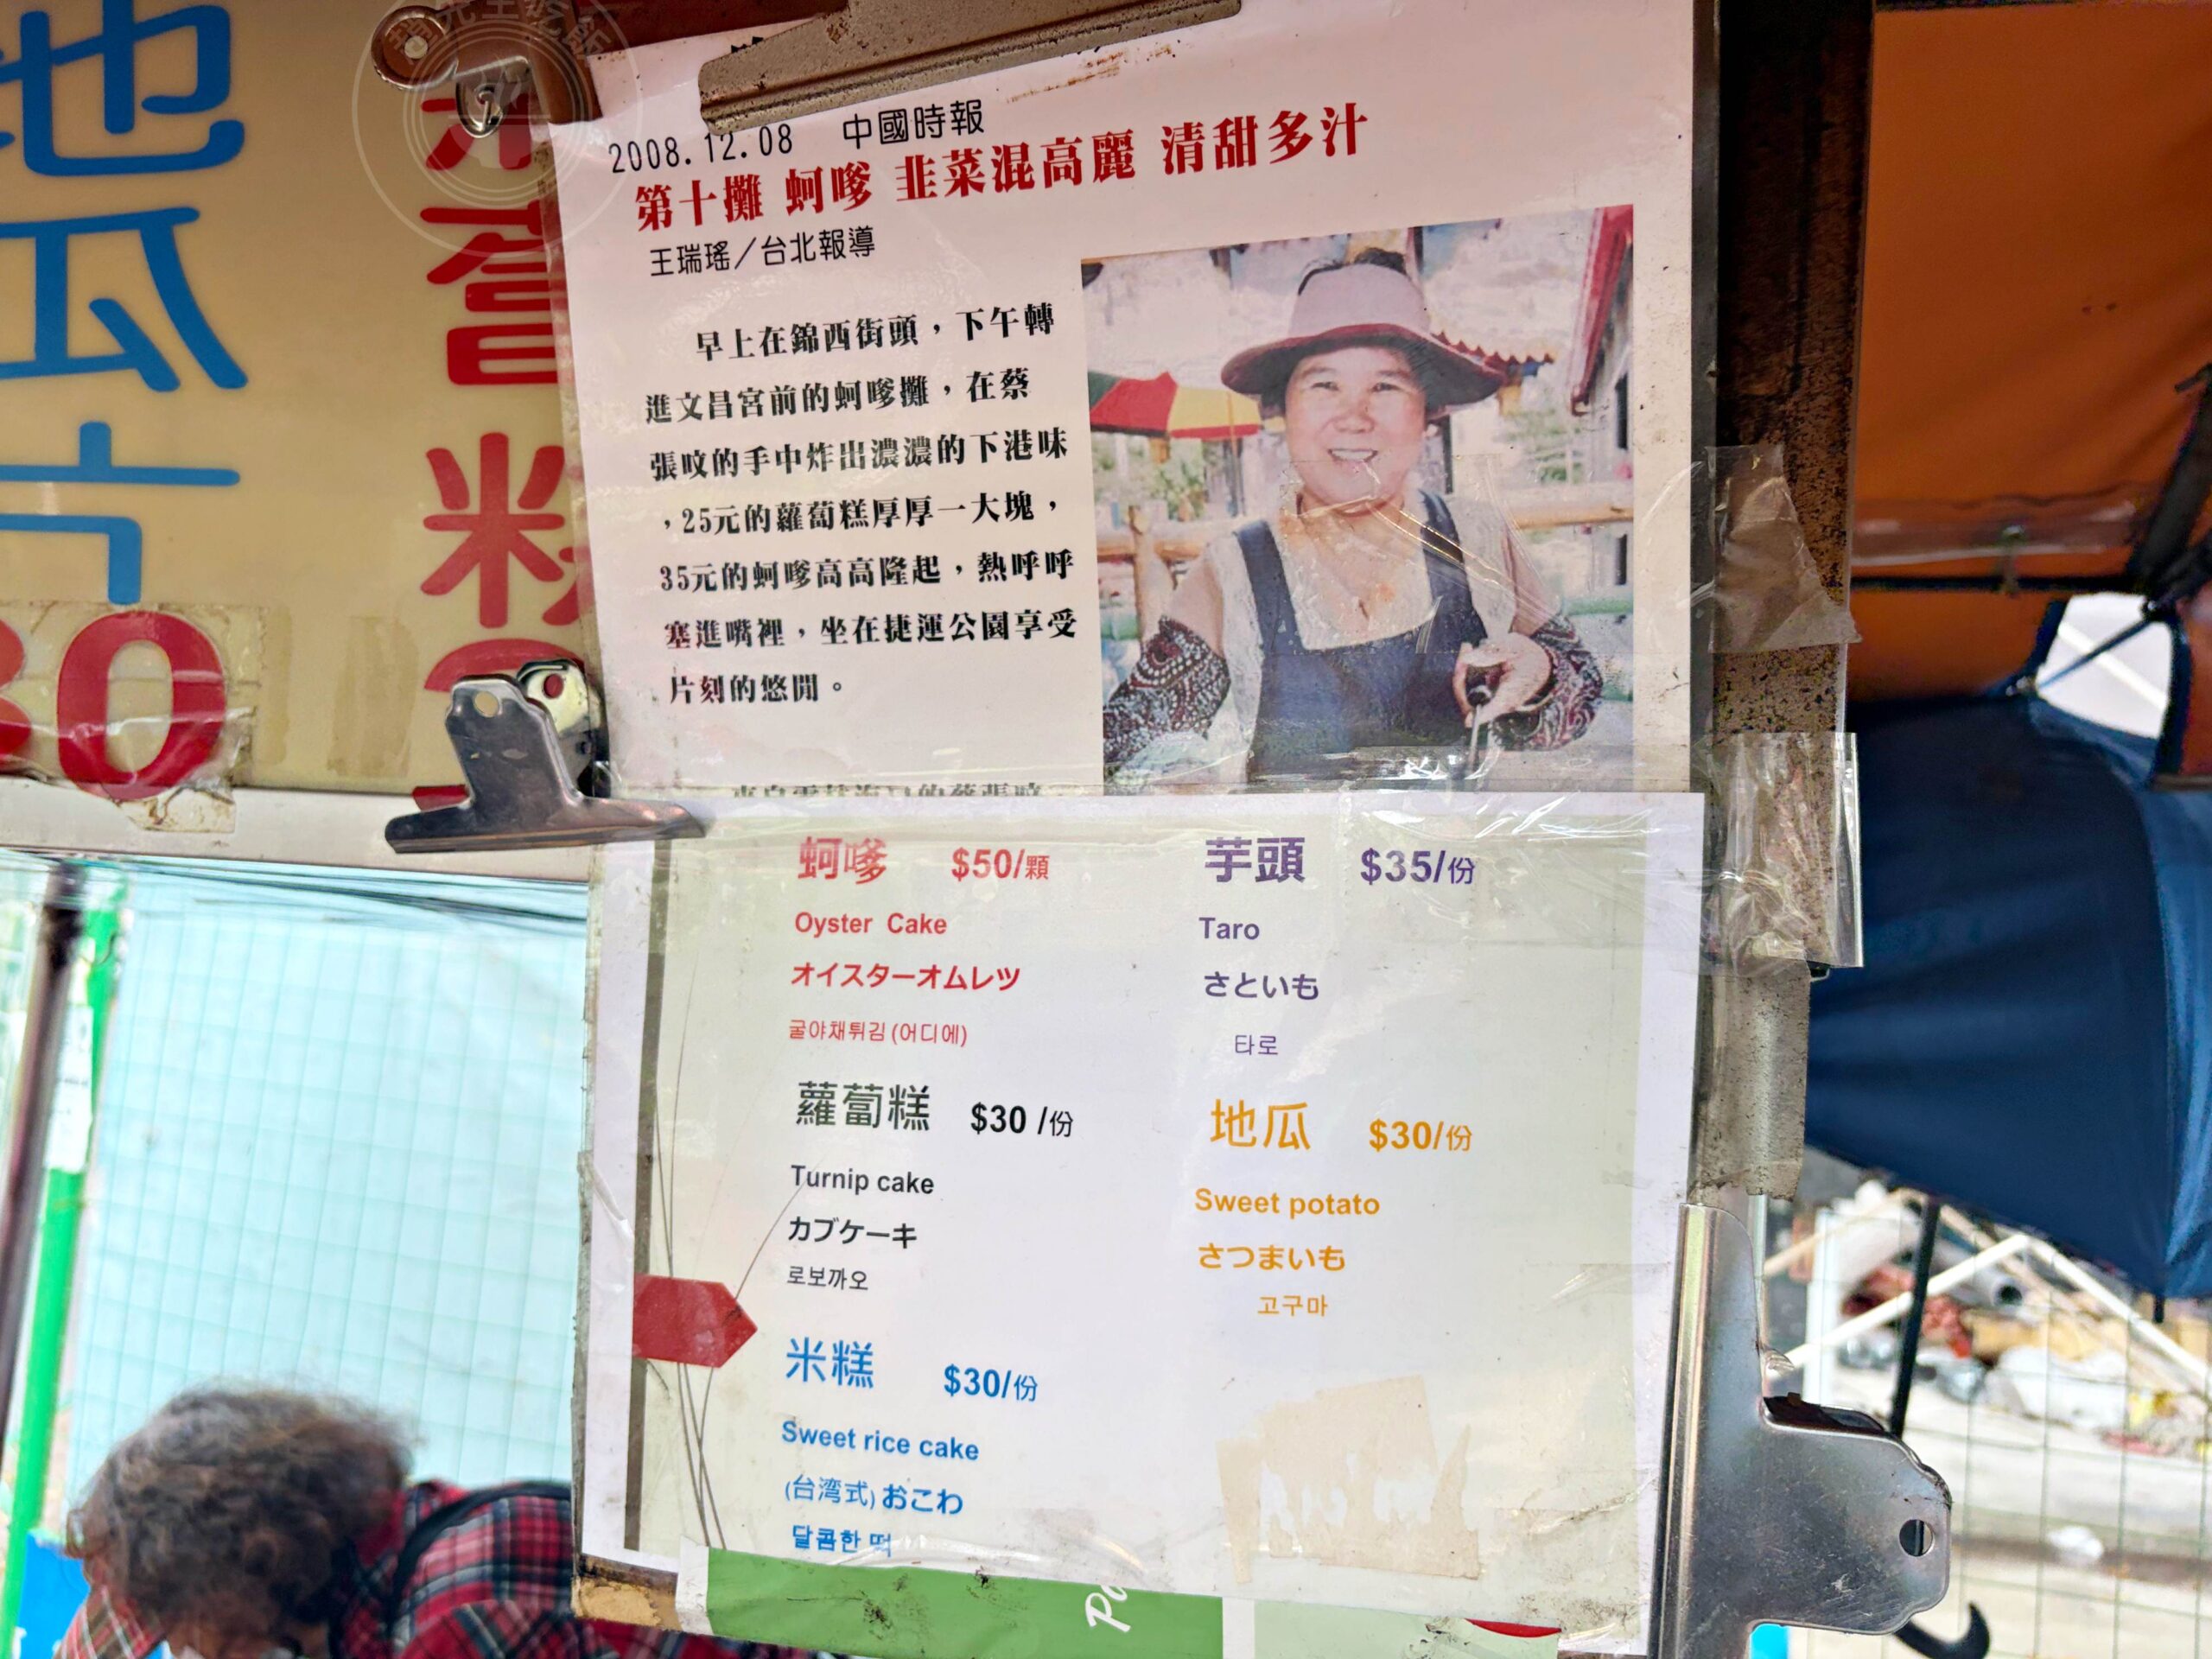 地
瓜
30
粉
2008.12.08 中國時報
第十攤 蚵嗲 韭菜混高麗 清甜多汁
王瑞瑤／台北報導
早上在錦西街頭，下午轉
進文昌宮前的蚵嗲攤，在蔡
張呅的手中炸出濃濃的下港味
，25元的蘿蔔糕厚厚一大塊，
35元的蚵嗲高高隆起，熱呼呼
塞進嘴裡，坐在捷運公園享受
片刻的悠閒。
蚵嗲 $50/顆
Oyster Cake
オイスターオムレツ
굴야채튀김(어디에)
蘿蔔糕 $30 /份
Turnip cake
カブケーキ
로보까오
米糕 $30/份
Sweet rice cake
(台湾式)おこわ
달콤한 떡
芋頭 $35/份
Taro
さといも
타로
地瓜 $30/份
Sweet potato
さつまいも
고구마